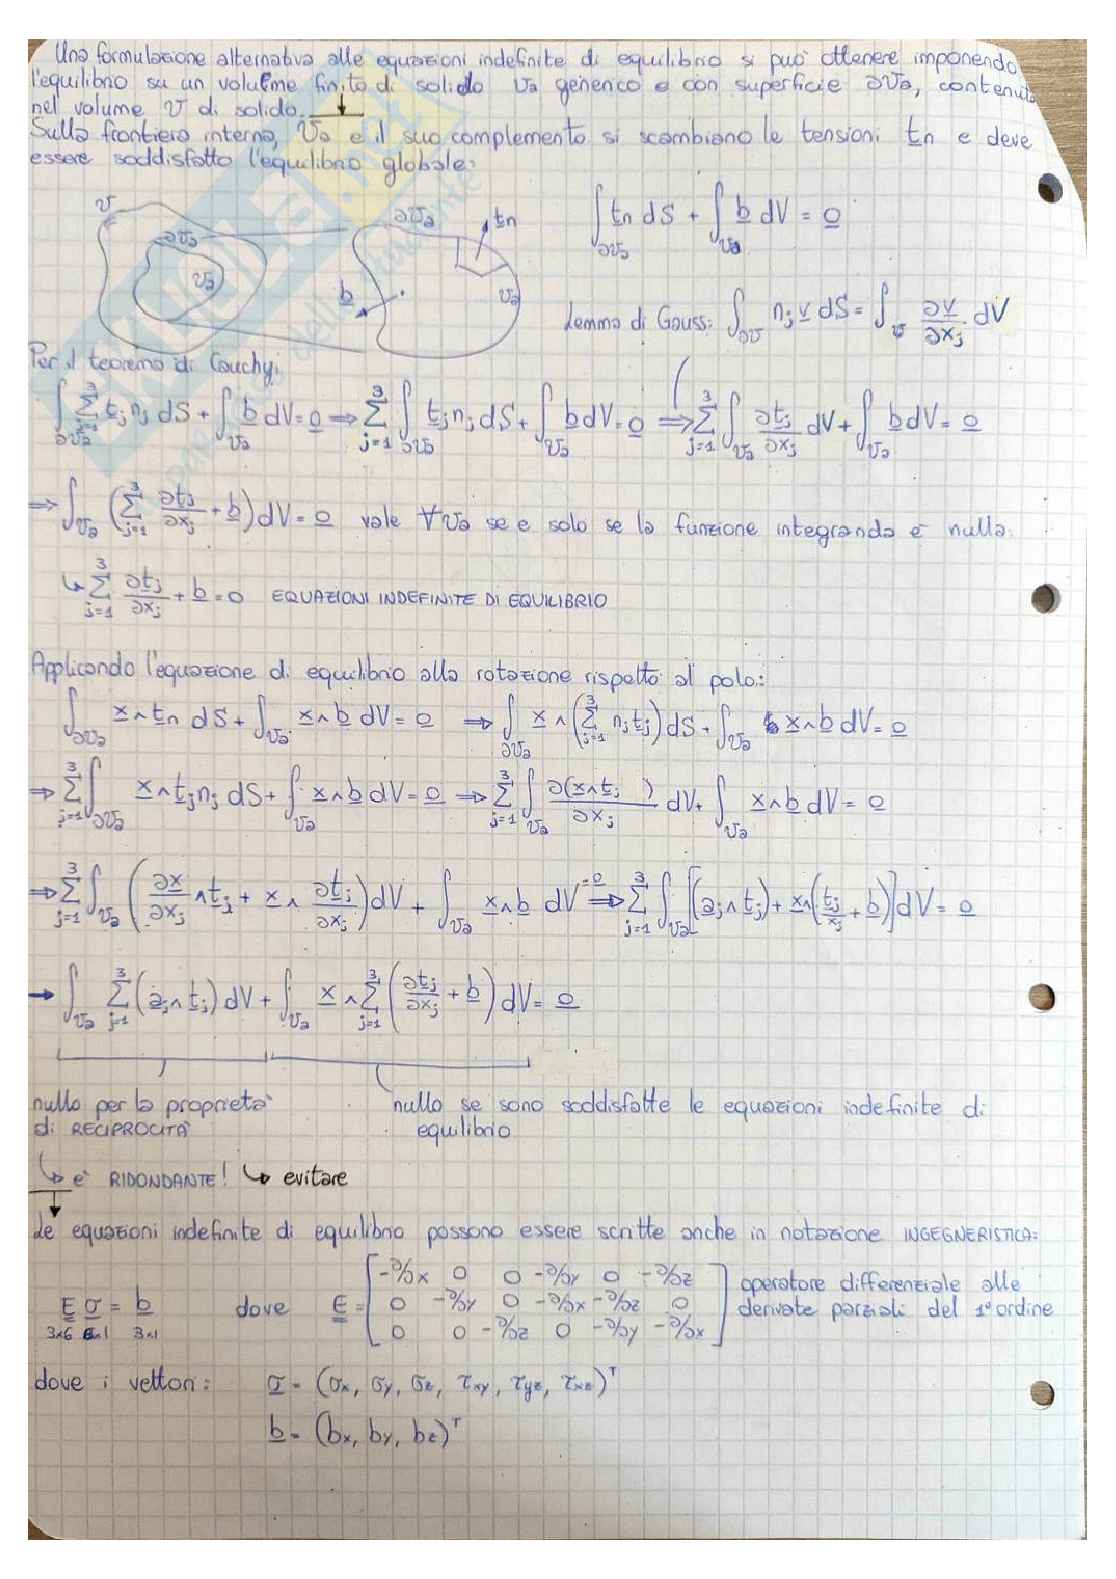 Una formulazione alternativa alle equazioni indefinite di equilibrio si può ottenere imponendo
l'equilibrio su un volume finito di solido Va generico e con superficie ∂Va, contenuto
nel volume V di solido.
Sulla frontiera interna, Va e il suo complemento si scambiano le tensioni tn e deve
essere soddisfatto l'equilibrio globale:
V ∂Va Va ∂Va tn b Va
∫∂Va tn dS + ∫Va b dV = 0
Lemma di Gauss: ∫∂V nj v dS = ∫V ∂v/∂xj dV
Per il teorema di Cauchy:
∫∂Va Σ(j=1→3) tj nj dS + ∫Va b dV = 0 ⇒ Σ(j=1→3) ∫∂Va tj nj dS + ∫Va b dV = 0 ⇒ Σ(j=1→3) ∫Va ∂tj/∂xj dV + ∫Va b dV = 0
⇒ ∫Va (Σ(j=1→3) ∂tj/∂xj + b) dV = 0 vale ∀Va se e solo se la funzione integranda è nulla:
↳ Σ(j=1→3) ∂tj/∂xj + b = 0 EQUAZIONI INDEFINITE DI EQUILIBRIO
Applicando l'equazione di equilibrio alla rotazione rispetto al polo:
∫∂Va x∧tn dS + ∫Va x∧b dV = 0 ⇒ ∫∂Va x∧(Σ(j=1→3) nj tj) dS + ∫Va x∧b dV = 0
⇒ Σ(j=1→3) ∫∂Va x∧tj nj dS + ∫Va x∧b dV = 0 ⇒ Σ(j=1→3) ∫Va ∂(x∧tj)/∂xj dV + ∫Va x∧b dV = 0
⇒ Σ(j=1→3) ∫Va (∂x/∂xj ∧ tj + x∧ ∂tj/∂xj) dV + ∫Va x∧b dV = 0 ⇒ Σ(j=1→3) ∫Va [(aj∧tj) + x∧(tj/xj + b)] dV = 0
→ ∫Va Σ(j=1→3) (aj∧tj) dV + ∫Va x∧Σ(j=1→3) (∂tj/∂xj + b) dV = 0
nullo per la proprietà nullo se sono soddisfatte le equazioni indefinite di
di RECIPROCITÀ equilibrio
↳ è RIDONDANTE! ↳ evitare
Le equazioni indefinite di equilibrio possono essere scritte anche in notazione INGEGNERISTICA:
E σ = b dove E = [-∂/∂x 0 0 -∂/∂y 0 -∂/∂z operatore differenziale alle
3x6 6x1 3x1 0 -∂/∂y 0 -∂/∂x -∂/∂z 0 derivate parziali del 1° ordine
0 0 -∂/∂z 0 -∂/∂y -∂/∂x]
dove i vettori: σ = (σx, σy, σz, τxy, τyz, τxz)ᵀ
b = (bx, by, bz)ᵀ